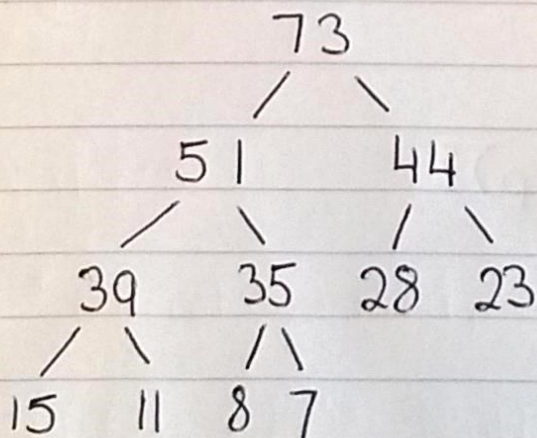 73
51 44
39 35 28 23
15 11 8 7